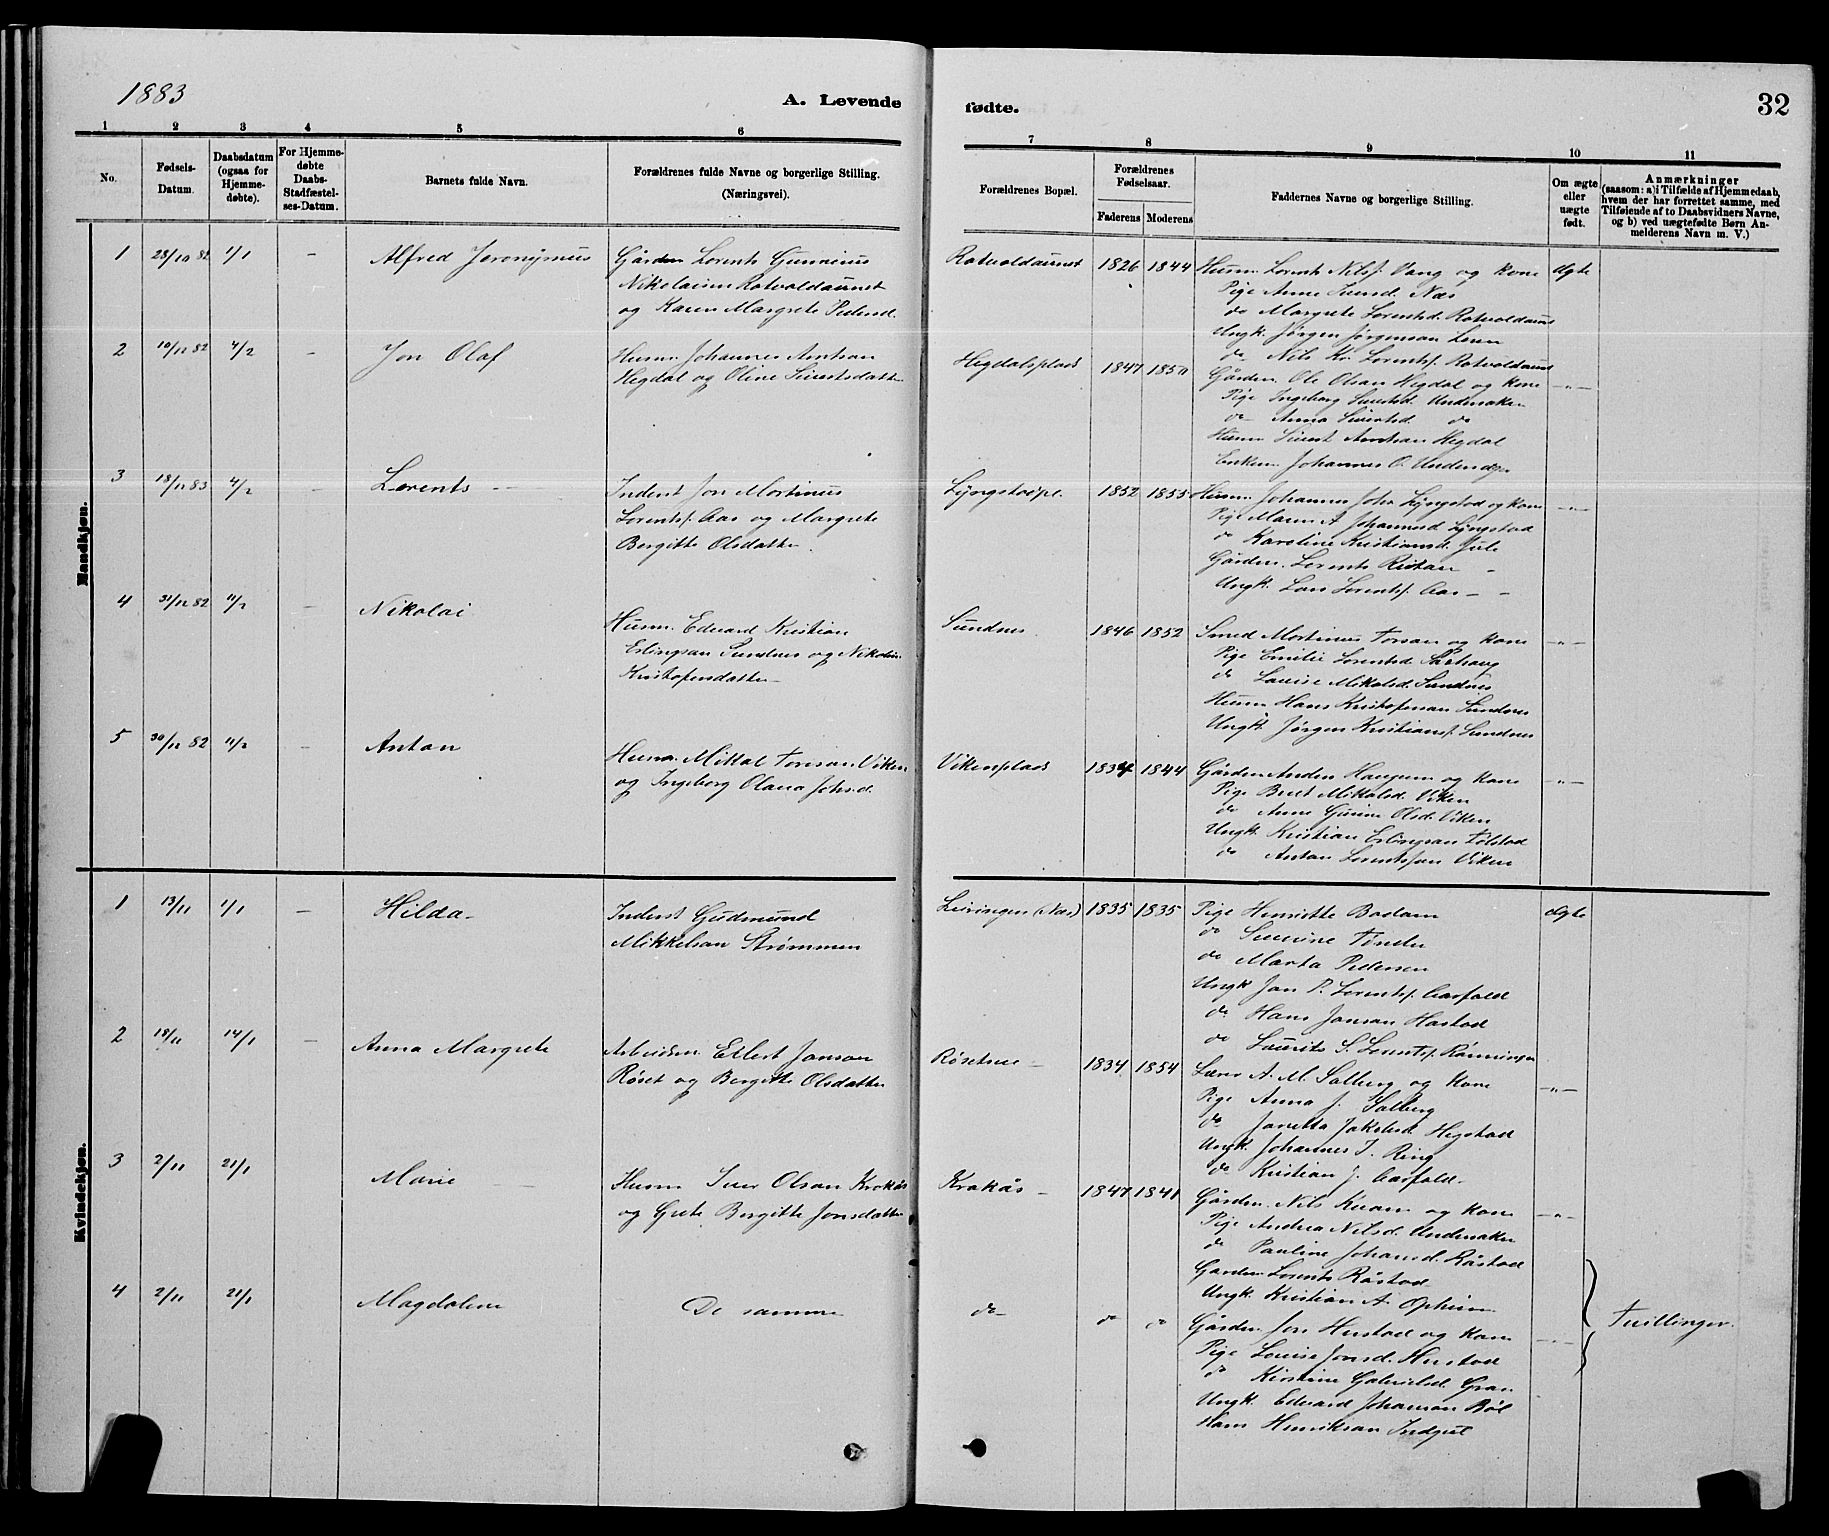 1883
A. Levende
fødte.
32
1 2 3 4 5 6 7 8 9 10 11
No.
Fødsels-Datum.
Daabsdatum (ogsaa for Hjemme-døbte).
For Hjemme-døbte Daabs-Stadfæstel-ses-Datum.
Barnets fulde Navn.
Forældrenes fulde Navne og borgerlige Stilling. (Næringsvei).
Forældrenes Bopæl.
Forældrenes Fødselsaar.
Faderens Moderens
Faddernes Navne og borgerlige Stilling.
Om ægte eller uægte født.
Anmærkninger
(saasom: a) i Tilfælde af Hjemmedaab,
hvem der har forrettet samme, med
Tilføiende af to Daabsvidners Navne,
og b) ved uægtefødte Børn An-
melderens Navn m. V.)
Mandkjøn.
1 28/10 82 1/1 – Alfred Jeronymus
Gårdm Lorents Gunnerius
Nikolaisen Ratvoldaunet
og Karen Margrete Pedersd.
Ratvoldaunet 1826 1844
Husm. Lorents Nilss. Vang og kone
Pige Anne Iversd. Næs
do Margrete Lorentsd. Ratvoldaunet
Ungk. Jørgen Jørgensen
do Nils Kr. Lorents. Ratvoldaunet
Ægte
2 10/12 82 4/2 – Jon Olaf
Husm. Johannes Arntsan
Hegdal og Oline Sivertsdatter
Hegdalsplads 1847 1850
Gårdm. Ole Olsan Hegdal og kone
Pige Ingeborg Sivertsd. Undersaker
do Anna Sivertsd. do
Husm Sivert Arntsan Hegdal
Enkem. Johannes O.
–„–
3 18/12 83 4/2 – Lorents
Inderst Jon Mortinus
Lorents. Aas og Margrete
Bergitte Olsdatter.
Lyngstadpl. 1852 1855
Husm. Johannes Lyngstad og kone
Pige Maren A Johannesd Lyngstad
do Karoline Kristiansd.
Gårdm. Lorents
Ungk. Lars Lorents. Aas
–„–
4 31/12 82 11/2 – Nikolai
Husm. Edvard Kristian
Erlingsan Sundnes og Nikoline
Kristofersdatter
Sundnes. 1846 1852
Smed Mortinus Torsan og kone
Pige Emilie Lorentsd
do Lovise Mikalsd. Sundnes
Husm Hans Kristofersan Sundnes
Ungk. Jørgen Kristians. Sundnes
–„–
5 30/12 82 11/2 – Anton
Husm. Mikal Toresan Viken
og Ingeborg Olava Johsd.
Vikenplads 1834 1844
Gårdm Anders Haugum og kone
Pige Beret Mikalsd. Viken
do Anne Olsd. Viken
Ungk. Kristian Erlingsan Følstad
do Anton Lorentssan Viken
–„–
Kvindekjøn.
1 13/11 1/1 – Hilda
Inderst Gudmund
Mikkelsan Strømmen
Leiringen (Næs) 1835 1835
Pige Henriette
do Severine
do Marta Pedersen
Ungk Jon P. Lorents. Aasfald
do Hans Jonsan Hastad
do Laurits S. Lorents. Rønningen
Ægte
2 18/11 14/1 – Anna Margrete
Arbeidsm. Ellert Jonsan
Røset og Bergitte Olsdatter
1834 1854
Lærer A. M. Salberg og kone
Pige Anna J. Salberg
do Janetta Jakobsd. Hegstad
Ungk. Johannes I. Ring
do Kristian J. Aasfald.
–„–
3 2/11 21/1 Marie
Husm Iver Olsan Krokås
og Grete Bergitte Jonsdatter
Krokås 1847 1841
Gårdm. Nils Kvam og kone
Pige Andrea Nilsd. Undersaker
do Pauline Johansd. Råstad
Gårdm. Lorents Råstad
Ungk. Kristian A. Opheim
–„–
4 2/11 21/1 Magdalene
De samme
do do do
Gårdm. Jon Hustad og kone
Pige Lovise Jonsd. Hustad
do Kirstine Gabrielsd. Gran
Ungk. Edvard Johansan Bøl
Hans Henriksan
–„–
Tvillinger.